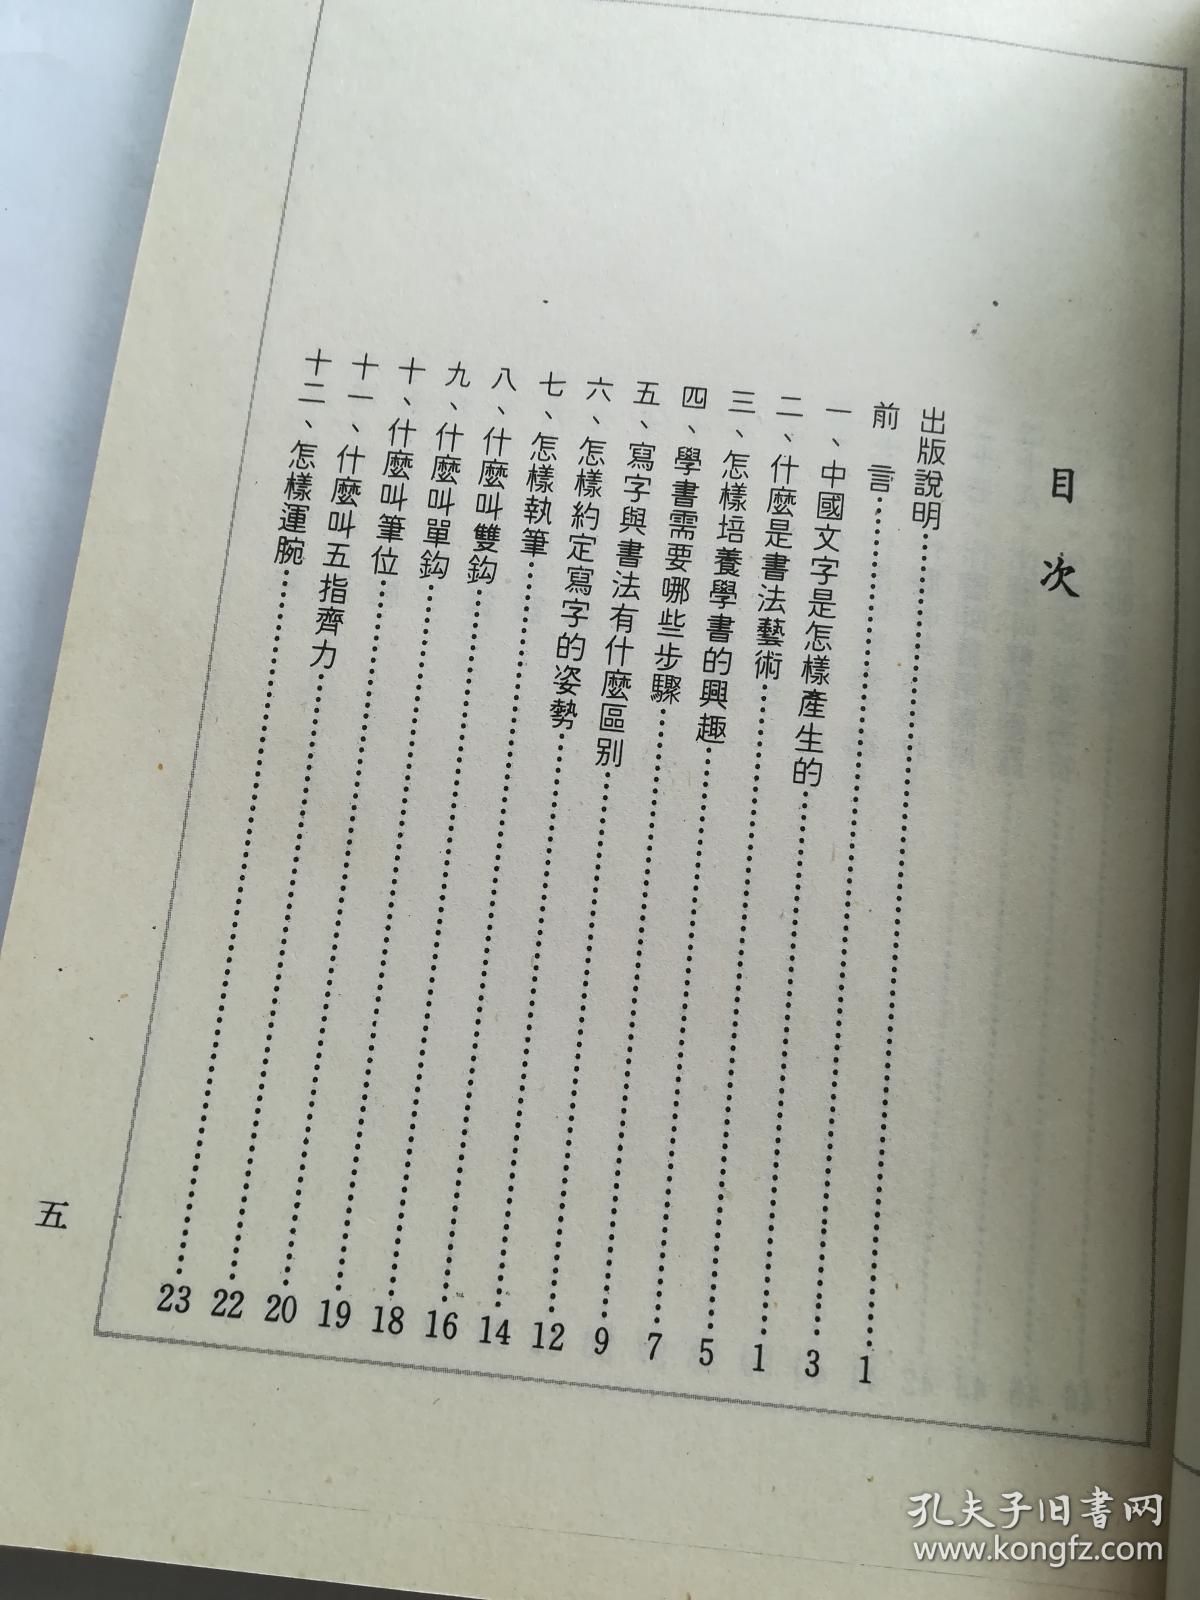 目次
出版說明……1
前言……3
一、中國文字是怎樣產生的……1
二、什麼是書法藝術……5
三、怎樣培養學書的興趣……7
四、學書需要哪些步驟……9
五、寫字與書法有什麼區别……12
六、怎樣約定寫字的姿勢……14
七、怎樣執筆……16
八、什麼叫雙鈎……18
九、什麼叫單鈎……19
十、什麼叫筆位……20
十一、什麼叫五指齊力……22
十二、怎樣運腕……23
五
孔夫子旧书网
www.kongfz.com